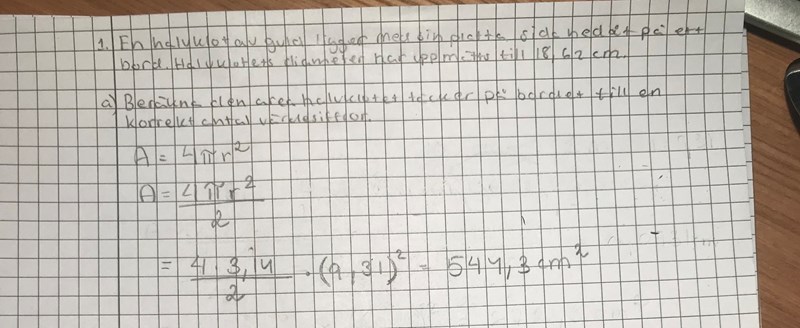 1. En halvklot av gummi ligger med sin platta sida nedåt på ett
bord. Halvklotets diameter har uppmätts till 18,62 cm.
a) Beräkna den area halvklotet täcker på bordet till en
korrekt antal värdesiffror.
A = 4πr²
A = 4πr²/2
= 4·3,14/2 · (9,31)² = 544,3 cm²